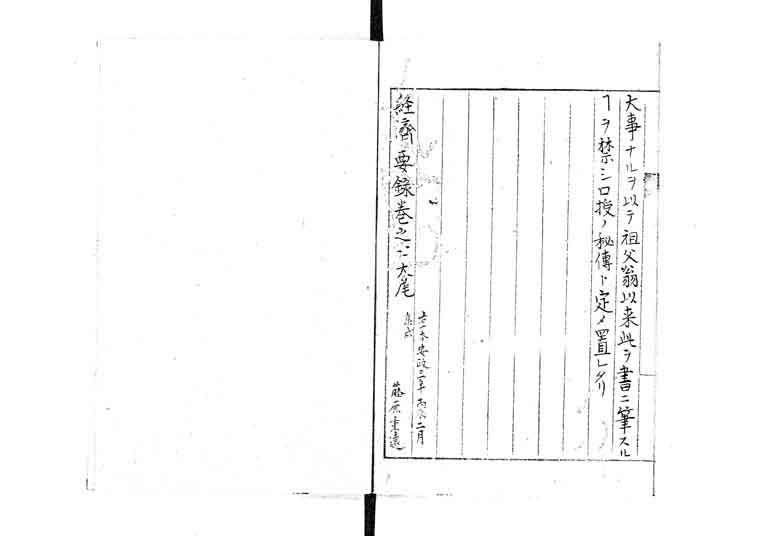 大事ナルヲ以テ祖父翁以来此ヲ書ニ筆スル
ヿヲ禁シ口授ノ秘傳ト定メ置レタリ
経濟要録巻之 大尾
安政三年丙辰二月
藤原重遠